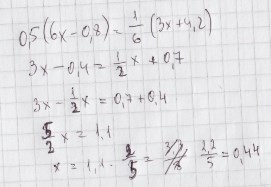 0,5(6x-0,8)=1/6(3x+4,2)
3x-0,4=1/2x+0,7
3x-1/2x=0,7+0,4
5/2x=1,1
x=1,1·2/5= 2,2/5=0,44